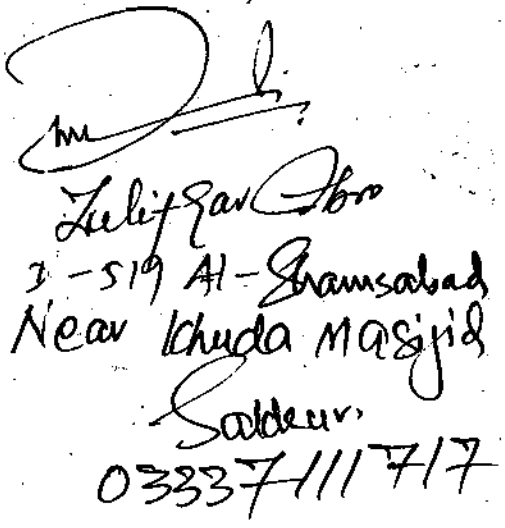 Zulifqar Abro
I-519 Al-Shamsabad
Near Khuda Masjid
Sukkur.
03337111717